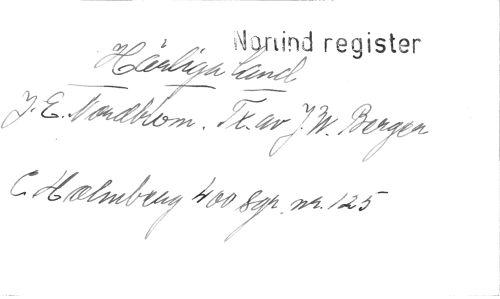 Norlind register
Härliga land
J. E. Nordblom. Tx. av J. W. Berger
C. Holmberg 400 Sgr. nr. 125